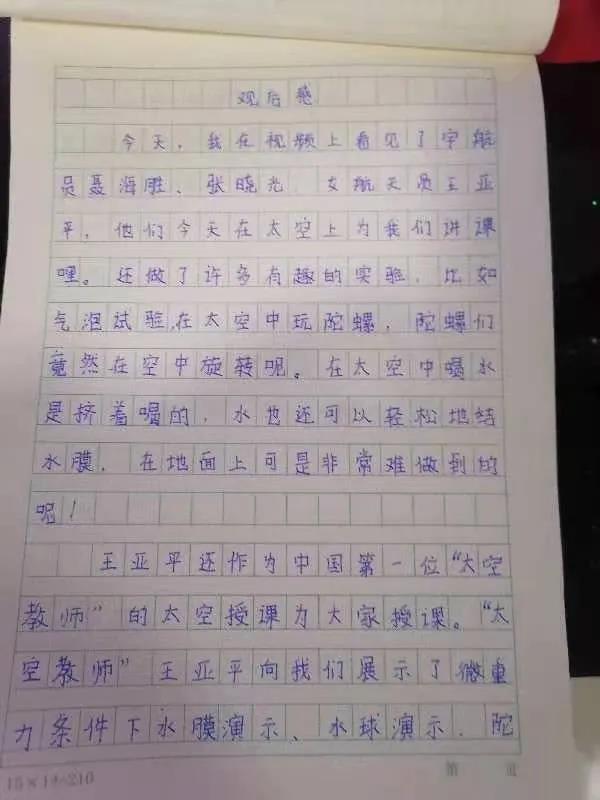 观后感
今天，我在视频上看见了宇航
员聂海胜、张晓光、女航天员王亚
平，他们今天在太空上为我们讲课
哩。还做了许多有趣的实验，比如
气泡试验，在太空中玩陀螺，陀螺们
竟然在空中旋转呢。在太空中喝水
是挤着喝的，水也还可以轻松地结
水膜，在地面上可是非常难做到的
呢！
王亚平还作为中国第一位“太空
教师”的太空授课为大家授课。“太
空教师”王亚平向我们展示了微重
力条件下水膜演示、水球演示，陀
15×14=210
第 页